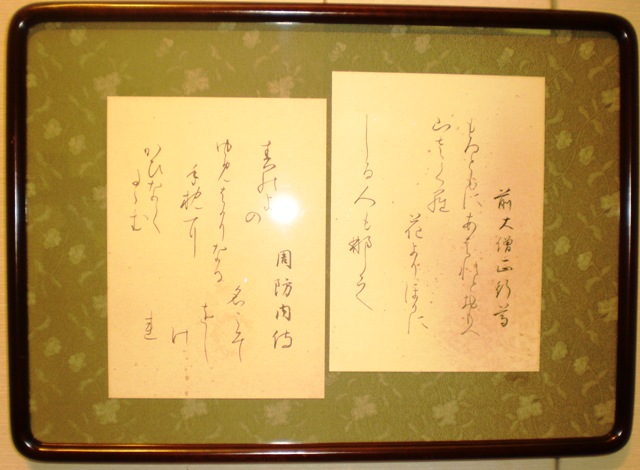 前大僧正行尊
もろともにあはれとおもへ
山さくら
花よりほかに
しる人も那し
周防内侍
春能よ
の
ゆめはかりなる
手枕に
かひなく
たゝむ
名こそ
をし
け
れ